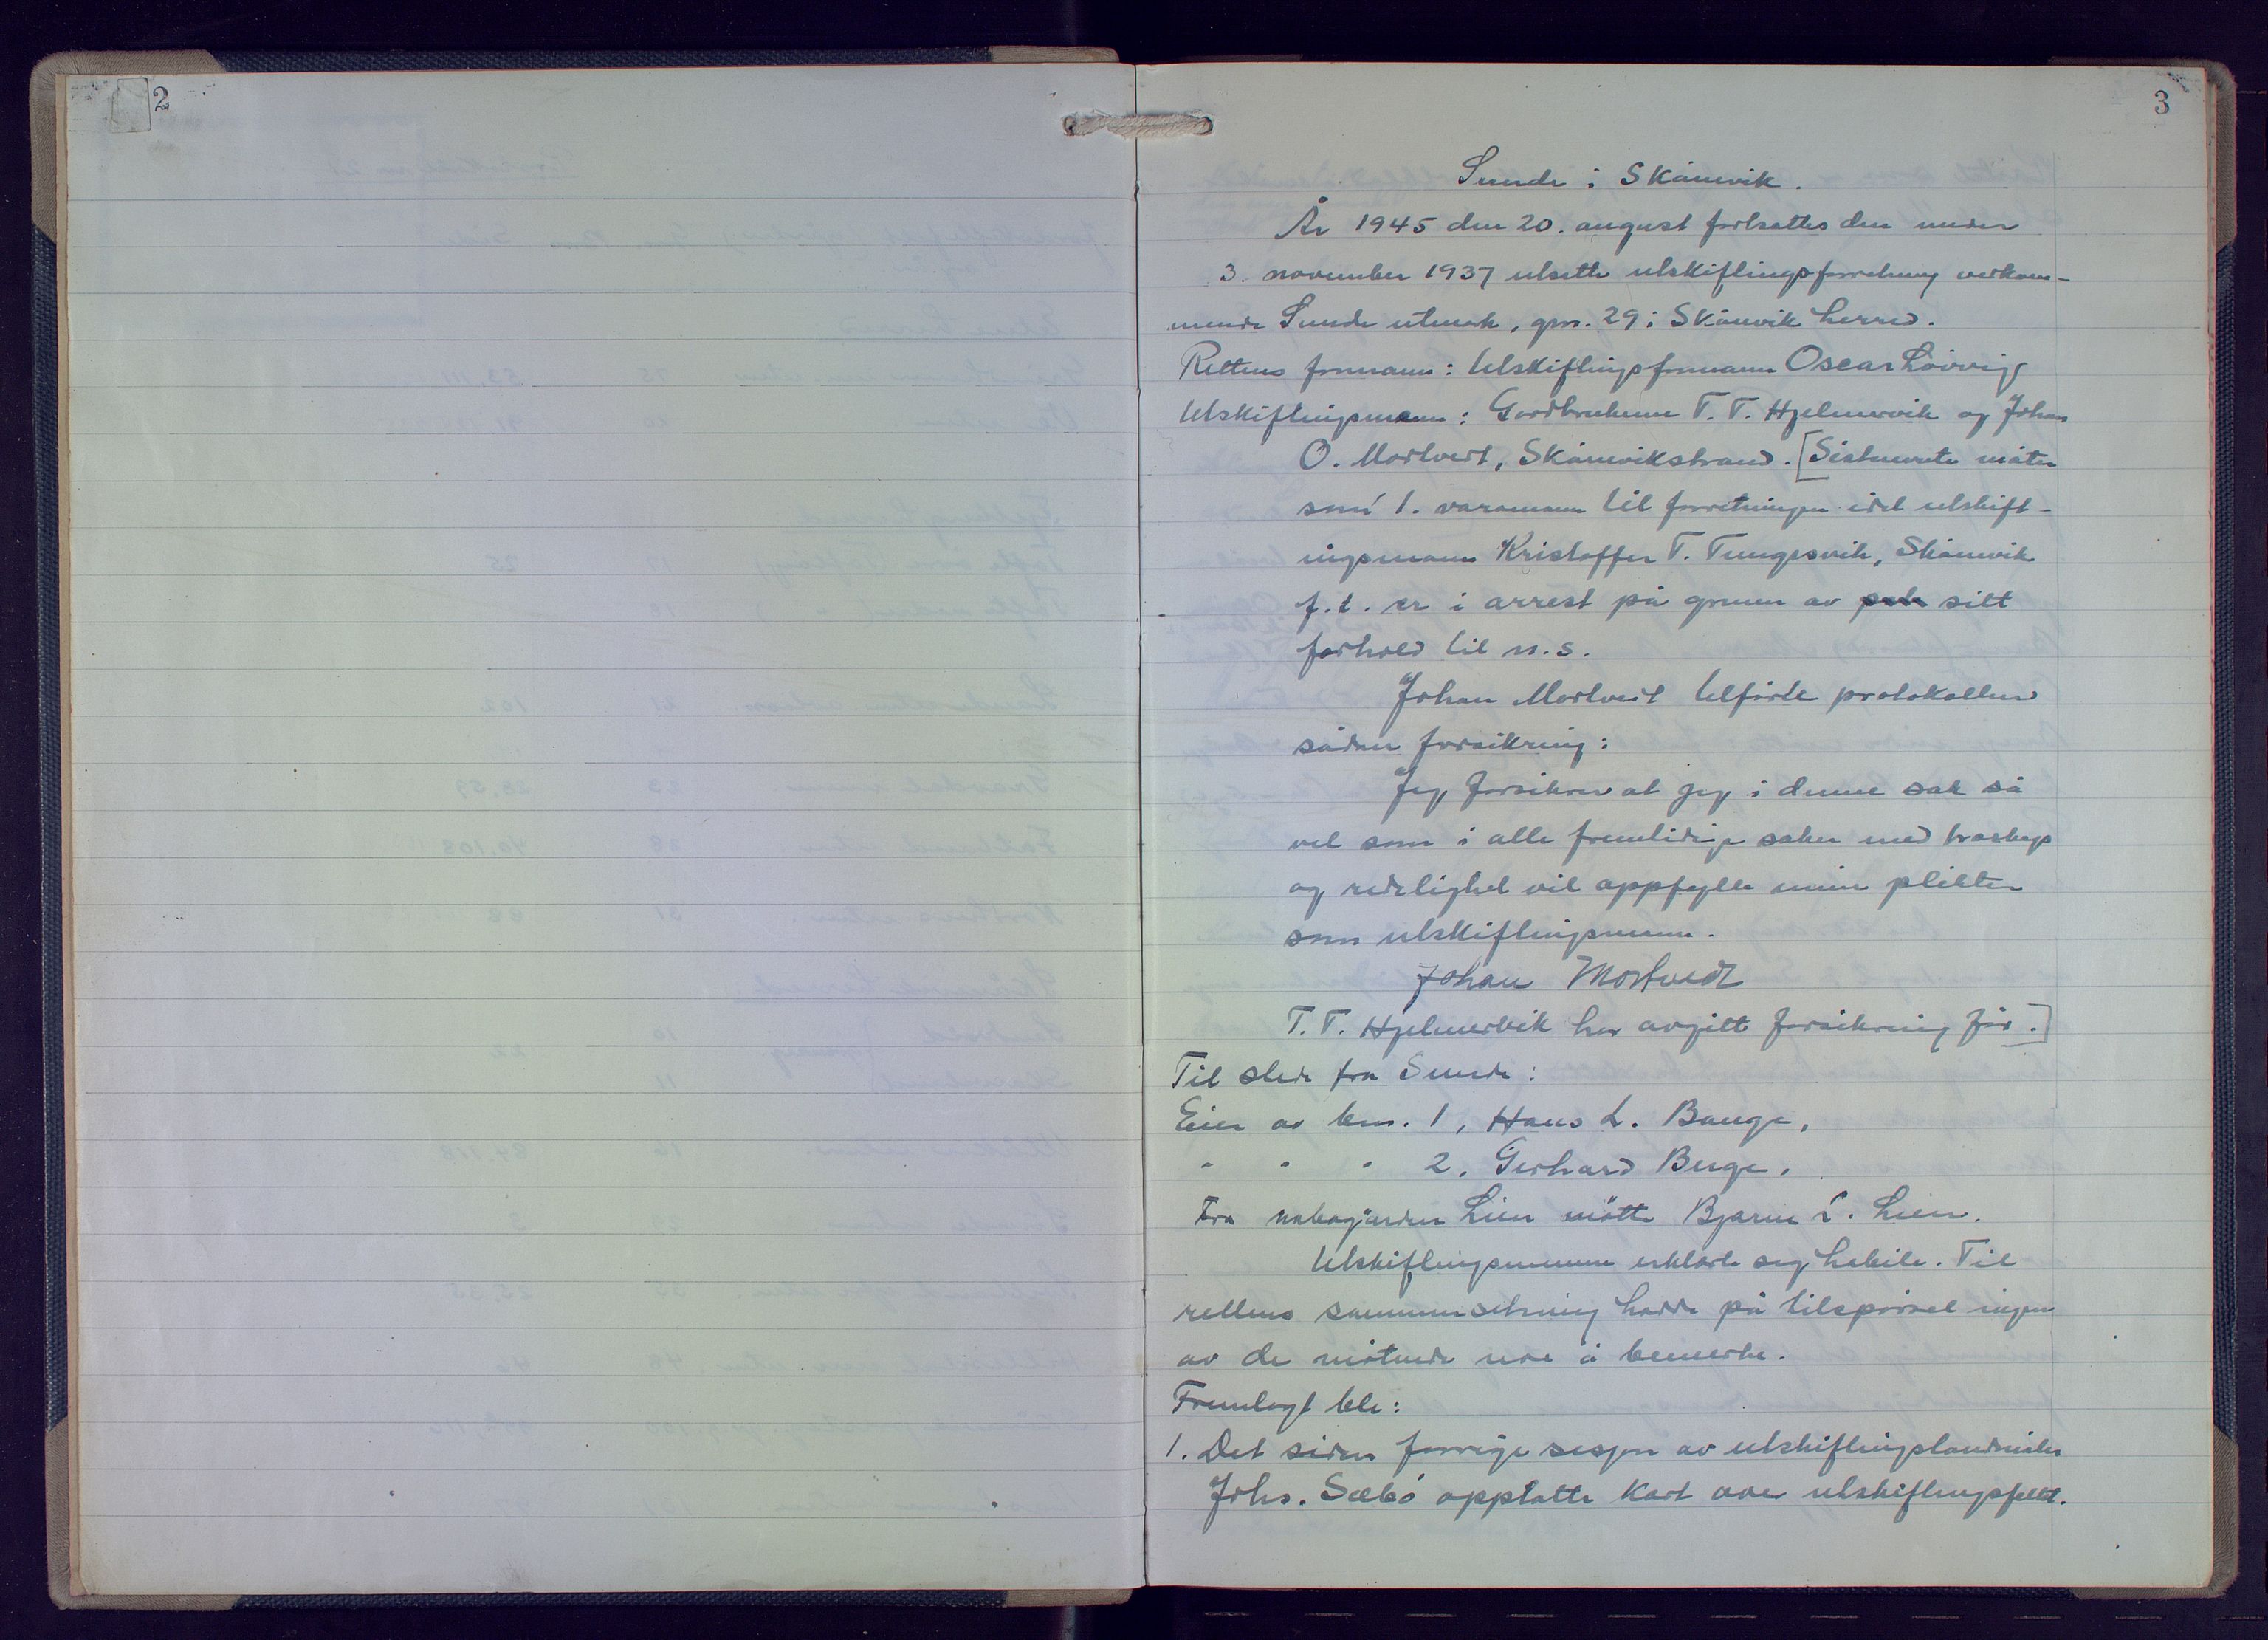 2
3
Sunde i Skånevik.
År 1945 den 20. august fortsattes den under
3. november 1937 utsatte utskiftingsforretning vedkom-
mende Sunde utmark, gnr. 29 i Skånevik herred.
Rettens formann: Utskiftingsformann Oscar Løvvig
Utskiftingsmenn: Gardbrukerne T. T. Hjelmervik og Johan
O. Mortveit, Skånevikstrand. [Sistnevnte møter
som 1. varamann til forretningen idet utskift-
ingsmann Kristoffer T. Tungesvik, Skånevik
f.t. er i arrest på grunn av sitt
forhold til n.s.
Johan Mortveit tilførte protokollen
sådan forsikring:
Jeg forsikrer at jeg i denne sak så
vel som i alle fremtidige saker med troskap
og redelighet vil oppfylle mine plikter
som utskiftingsmann.
Johan Mortvedt
T. T. Hjelmervik har avgitt forsikring før.]
Til stede fra Sunde:
Eier av bnr. 1, Hans L. Bauge,
" " " 2, Gerhard Berge.
Fra nabogarden Lien møtte Bjarne L. Lien.
Utskiftingsmennene erklærte seg habile. Til
rettens sammensetning hadde på tilspørsel ingen
av de møtende noe å bemerke.
Fremlagt ble:
1. Det siden forrige sesjon av utskiftingslandmåler
Johs. Sæbø opptatte kart over utskiftingsfeltet.